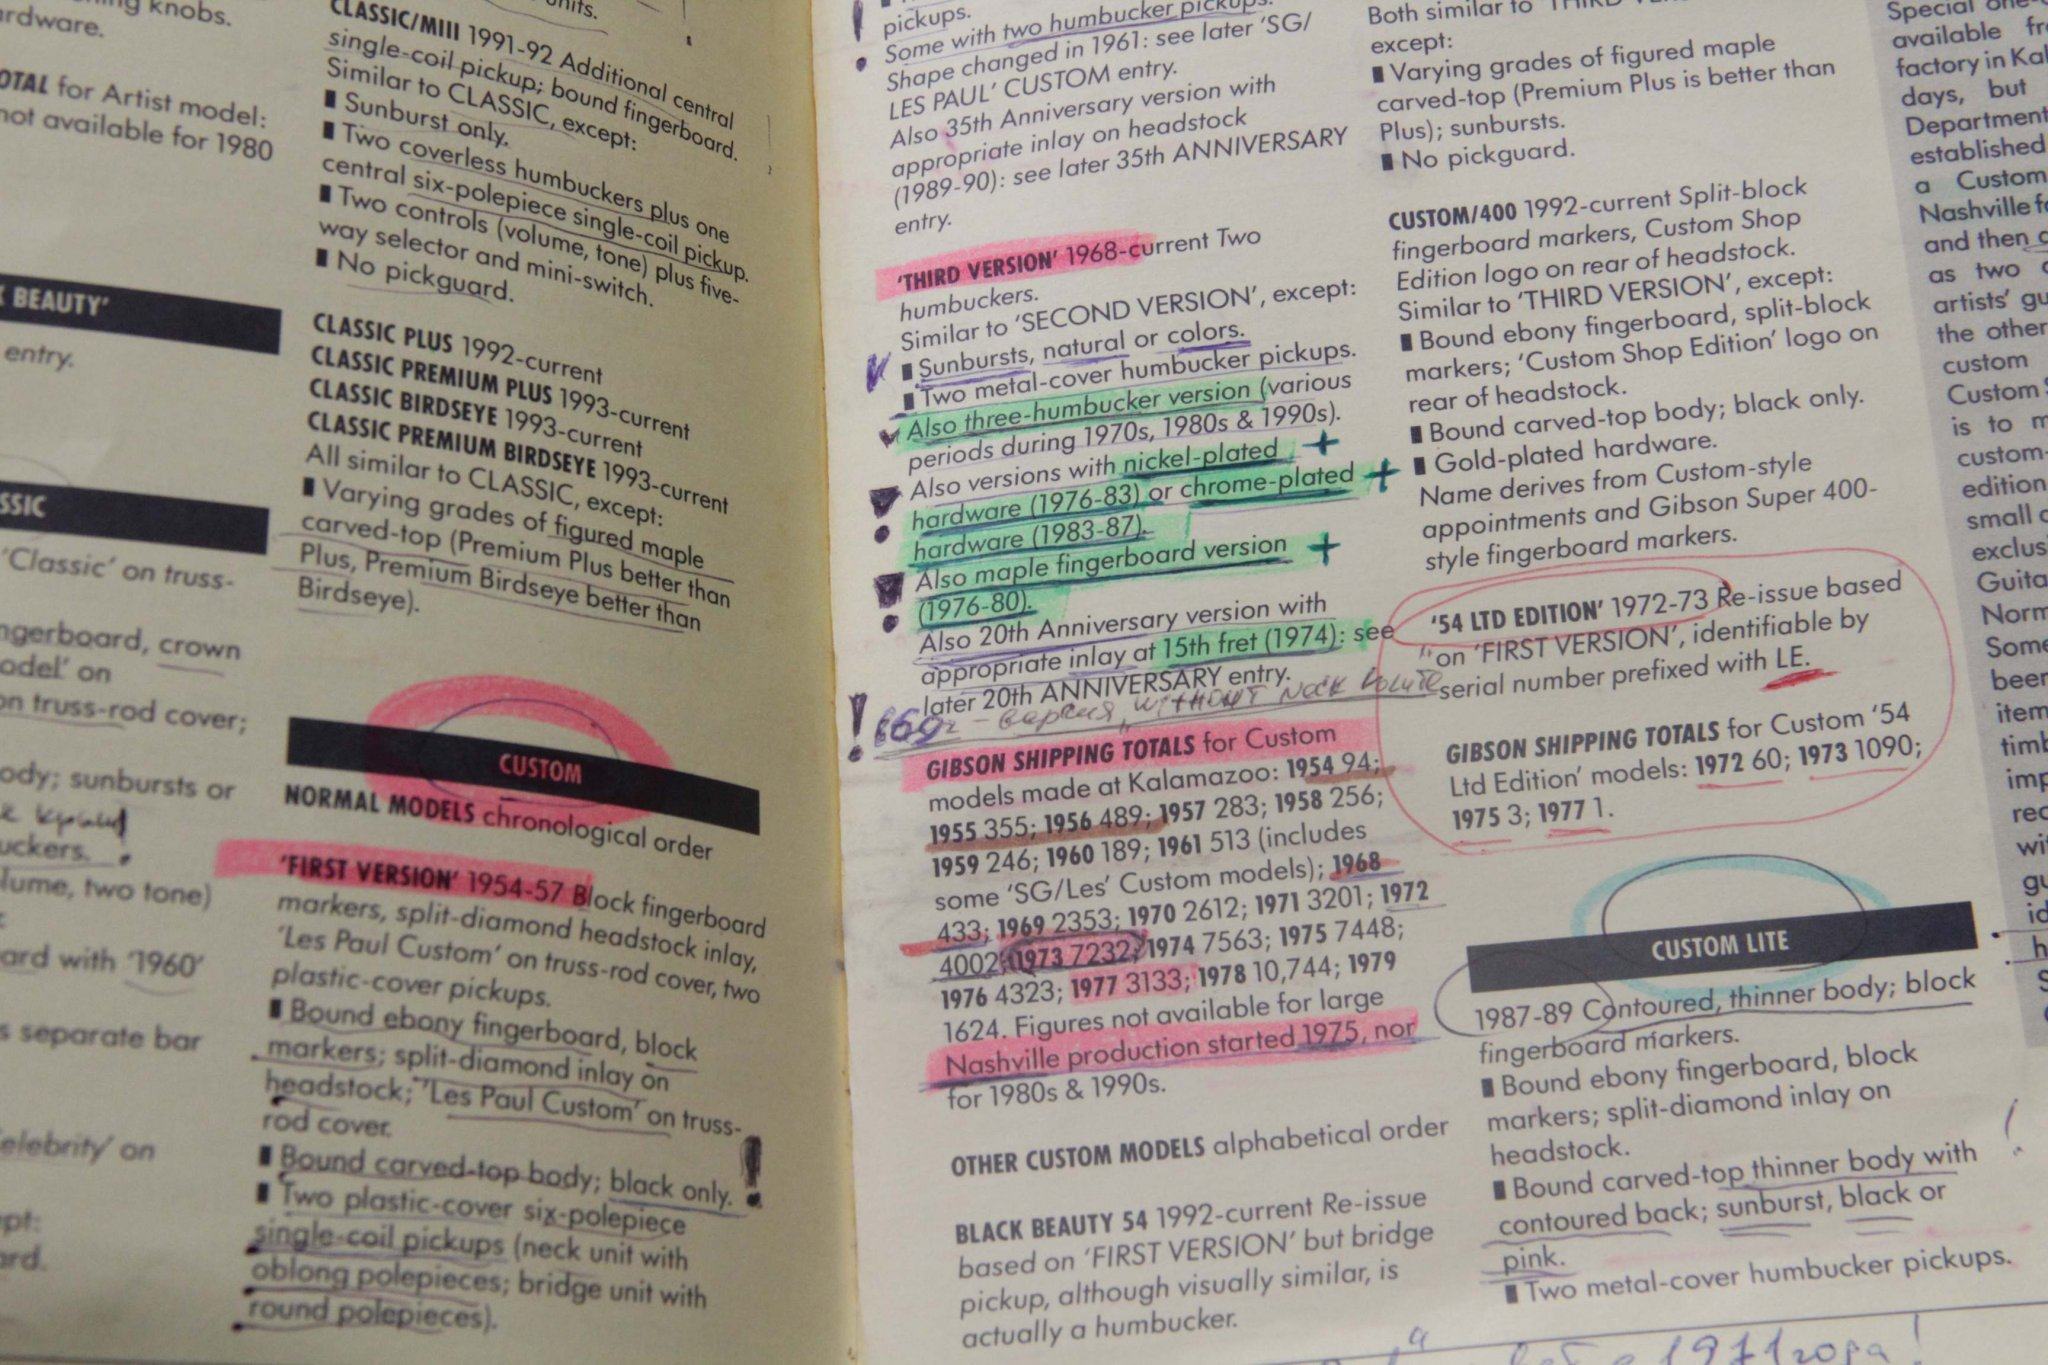 knobs.
ardware.
OTAL for Artist model:
not available for 1980
K BEAUTY'
entry.
SSIC
'Classic' on truss-
ngerboard, crown
odel' on
on truss-rod cover;
ody; sunbursts or
uckers.
lume, two tone)
ard with '1960'
s separate bar
elebrity' on
ept:
ard.
units.
CLASSIC/MIII 1991-92 Additional central
single-coil pickup; bound fingerboard.
Similar to CLASSIC, except:
▮ Sunburst only.
▮ Two coverless humbuckers plus one
central six-polepiece single-coil pickup.
▮ Two controls (volume, tone) plus five-
way selector and mini-switch.
▮ No pickguard.
CLASSIC PLUS 1992-current
CLASSIC PREMIUM PLUS 1993-current
CLASSIC BIRDSEYE 1993-current
CLASSIC PREMIUM BIRDSEYE 1993-current
All similar to CLASSIC, except:
▮ Varying grades of figured maple
carved-top (Premium Plus better than
Plus, Premium Birdseye better than
Birdseye).
CUSTOM
NORMAL MODELS chronological order
'FIRST VERSION' 1954-57 Block fingerboard
markers, split-diamond headstock inlay,
'Les Paul Custom' on truss-rod cover, two
plastic-cover pickups.
▮ Bound ebony fingerboard, block
markers; split-diamond inlay on
headstock; 'Les Paul Custom' on truss-
rod cover.
▮ Bound carved-top body; black only. !
▮ Two plastic-cover six-polepiece
single-coil pickups (neck unit with
oblong polepieces; bridge unit with
round polepieces).
pickups.
Some with two humbucker pickups.
Shape changed in 1961: see later 'SG/
LES PAUL' CUSTOM entry.
Also 35th Anniversary version with
appropriate inlay on headstock
(1989-90): see later 35th ANNIVERSARY
entry.
'THIRD VERSION' 1968-current Two
humbuckers.
Similar to 'SECOND VERSION', except:
▮ Sunbursts, natural or colors.
▮ Two metal-cover humbucker pickups.
Also three-humbucker version (various
periods during 1970s, 1980s & 1990s).
Also versions with nickel-plated +
hardware (1976-83) or chrome-plated +
hardware (1983-87).
Also maple fingerboard version +
(1976-80).
Also 20th Anniversary version with
appropriate inlay at 15th fret (1974): see
later 20th ANNIVERSARY entry.
! 69г - версия "WITHOUT NECK VOLUTE"
GIBSON SHIPPING TOTALS for Custom
models made at Kalamazoo: 1954 94;
1955 355; 1956 489; 1957 283; 1958 256;
1959 246; 1960 189; 1961 513 (includes
some 'SG/Les' Custom models); 1968
433; 1969 2353; 1970 2612; 1971 3201; 1972
4002; 1973 7232; 1974 7563; 1975 7448;
1976 4323; 1977 3133; 1978 10,744; 1979
1624. Figures not available for large
Nashville production started 1975, nor
for 1980s & 1990s.
OTHER CUSTOM MODELS alphabetical order
BLACK BEAUTY 54 1992-current Re-issue
based on 'FIRST VERSION' but bridge
pickup, although visually similar, is
actually a humbucker.
Both similar to 'THIRD
except:
▮ Varying grades of figured maple
carved-top (Premium Plus is better than
Plus); sunbursts.
▮ No pickguard.
CUSTOM/400 1992-current Split-block
fingerboard markers, Custom Shop
Edition logo on rear of headstock.
Similar to 'THIRD VERSION', except:
▮ Bound ebony fingerboard, split-block
markers; 'Custom Shop Edition' logo on
rear of headstock.
▮ Bound carved-top body; black only.
▮ Gold-plated hardware.
Name derives from Custom-style
appointments and Gibson Super 400-
style fingerboard markers.
'54 LTD EDITION' 1972-73 Re-issue based
on 'FIRST VERSION', identifiable by
serial number prefixed with LE.
GIBSON SHIPPING TOTALS for Custom '54
Ltd Edition' models: 1972 60; 1973 1090;
1975 3; 1977 1.
CUSTOM LITE
1987-89 Contoured, thinner body; block
fingerboard markers.
▮ Bound ebony fingerboard, block
markers; split-diamond inlay on
headstock.
▮ Bound carved-top thinner body with
contoured back; sunburst, black or
pink.
▮ Two metal-cover humbucker pickups.
1971 года!
Special one-
available fr
factory in Kal
days, but
Department
established
a Custom
Nashville fo
and then
as two
artists' gu
the other
custom
Custom S
is to m
custom-
edition
small
exclus
Guita
Norm
Some
been
item
timb
imp
rec
wit
gu
id
h